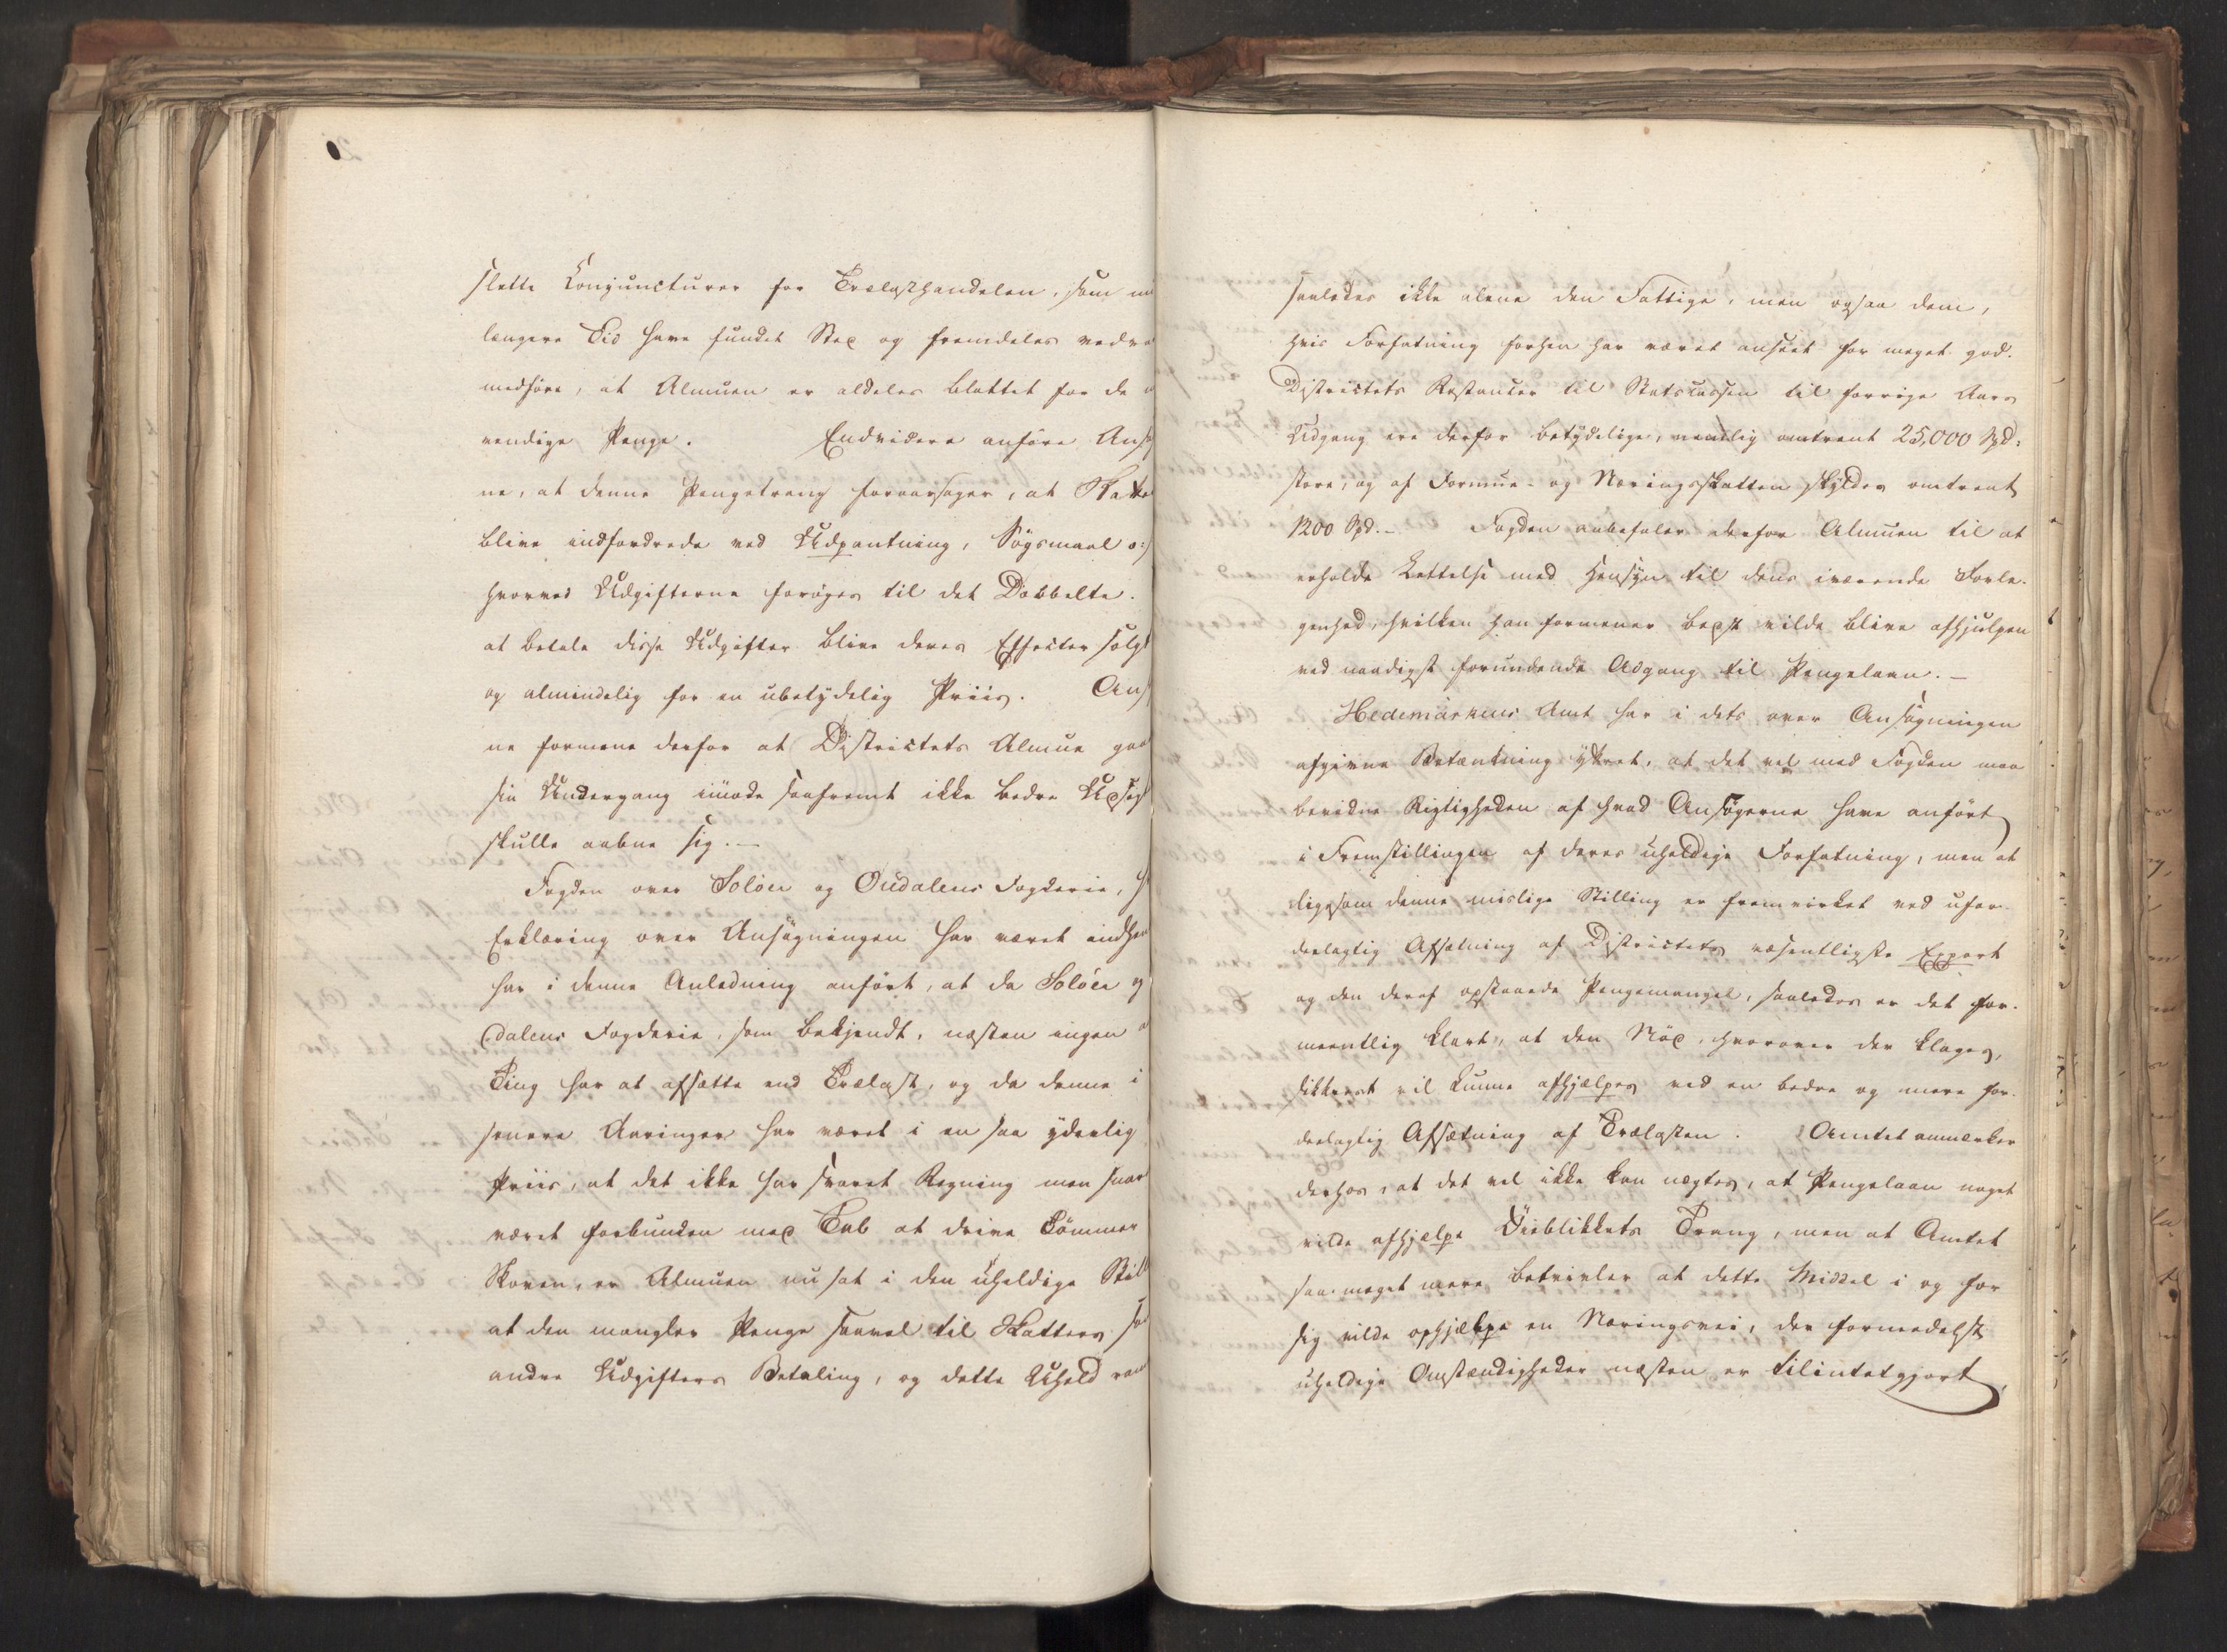 slette Conjuncturer for Trælasthandelen, som nu
længere Tid have fundet Sted og fremdeles vedva
medføre, at Almuen er aldeles blottet for de
vendige Penge. Endvidere anføre Ansø
ne, at denne Pengetrang foraarsager, at Skatte
blive indfordrede ved Udpantning, Søgsmaal o:s
hvorved Udgifterne forøges til det Dobbelte.
at betale disse Udgifter blive deres Effecter solgt
og almindelig for en ubetydelig Priis. Ans
ne formene derfor at Districtets Almue gaa
sin Undergang imøde saafremt ikke bedre Udsigt
skulle aabne sig. —
Fogden over Soløer og Oudalens Fogderie, h
Erklæring over Ansøgningen har været indhen
har i denne Anledning anført, at da Soløer og
dalens Fogderie, som bekjendt, næsten ingen a
Ting har at afsætte end Trælast, og da denne i
senere Aaringer har været i en saa yderlig
Priis, at det ikke har svaret Regning men snar
været forbunden med Tab at drive Tømmer
Skoven, er Almuen nu sat i den uheldige Still
at den mangler Penge saavel til Skatters so
andre Udgifters Betaling, og dette Uheld ram
saaledes ikke alene den Fattige, men ogsaa dem,
hvis Forfatning forhen har været anseet for meget god.
Districtets Restancer til Statscassen til forrige Aars
Udgang ere derfor betydelige, nemlig omtrent 25,000 Spd:
store, og af Formue- og Næringsskatten skyldes omtrent
1200 Spd. — Fogden anbefaler derfor Almuen til at
erholde Lettelse med Hensyn til dens iværende Forle-
genhed, hvilken han formener bedst vilde blive afhjulpen
ved naadigst forundende Adgang til Pengelaan. —
Hedemarkens Amt har i dets over Ansøgningen
afgivne Betænkning yttret, at det vel med Fogden maa
bevidne Rigtigheden af hvad Ansøgerne have anført
i Fremstillingen af deres uheldige Forfatning, men at
ligesom denne mislige Stilling er fremvirket ved ufor-
deelagtig Afsætning af Districtets væsentligste Export
og den deraf opstaaede Pengemangel, saaledes er det for-
meentlig klart, at den Nød, hvorover der klages,
sikkrest vil kunne afhjælpes ved en bedre og mere for-
deelagtig Afsætning af Trælasten. Amtet anmærker
derhos, at det vel ikke kan nægtes, at Pengelaan noget
vilde afhjælpe Øieblikkets Trang, men at Amtet
saa meget mere betvivler at dette Middel i og for
sig vilde ophjælpe en Næringsvei, der formedelst
uheldige Omstændigheder næsten er tilintetgjort,